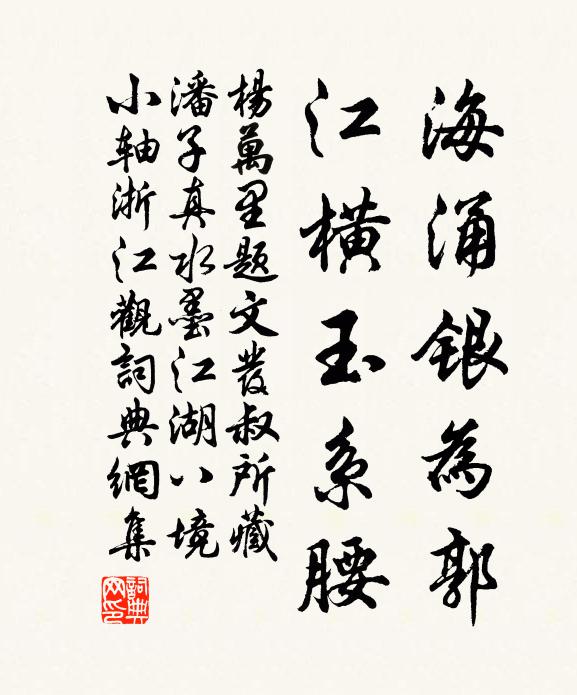 海涌银為郭
江横玉系腰
楊萬里题文發叔所藏
潘子真水墨江湖八境
小轴浙江觀詞典網集
詞典网印